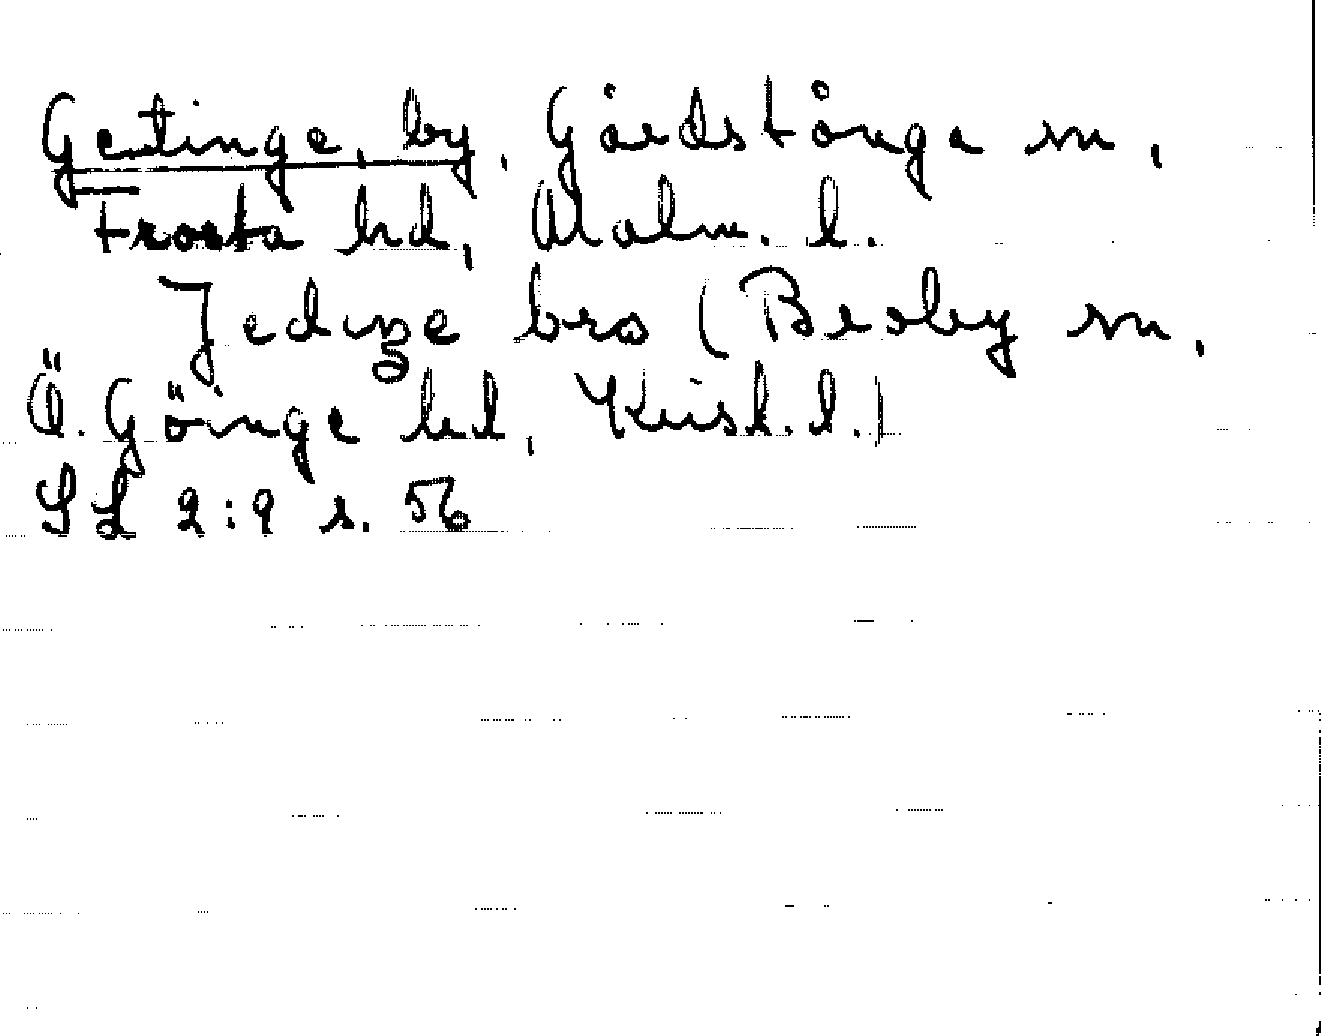 Getinge, by, Gårdstånga sn,
Frosta hd, Malm. l.
Jedinge bro (Broby sn,
Ö. Göinge hd, Krist. l.)
SL 2:9 s. 56